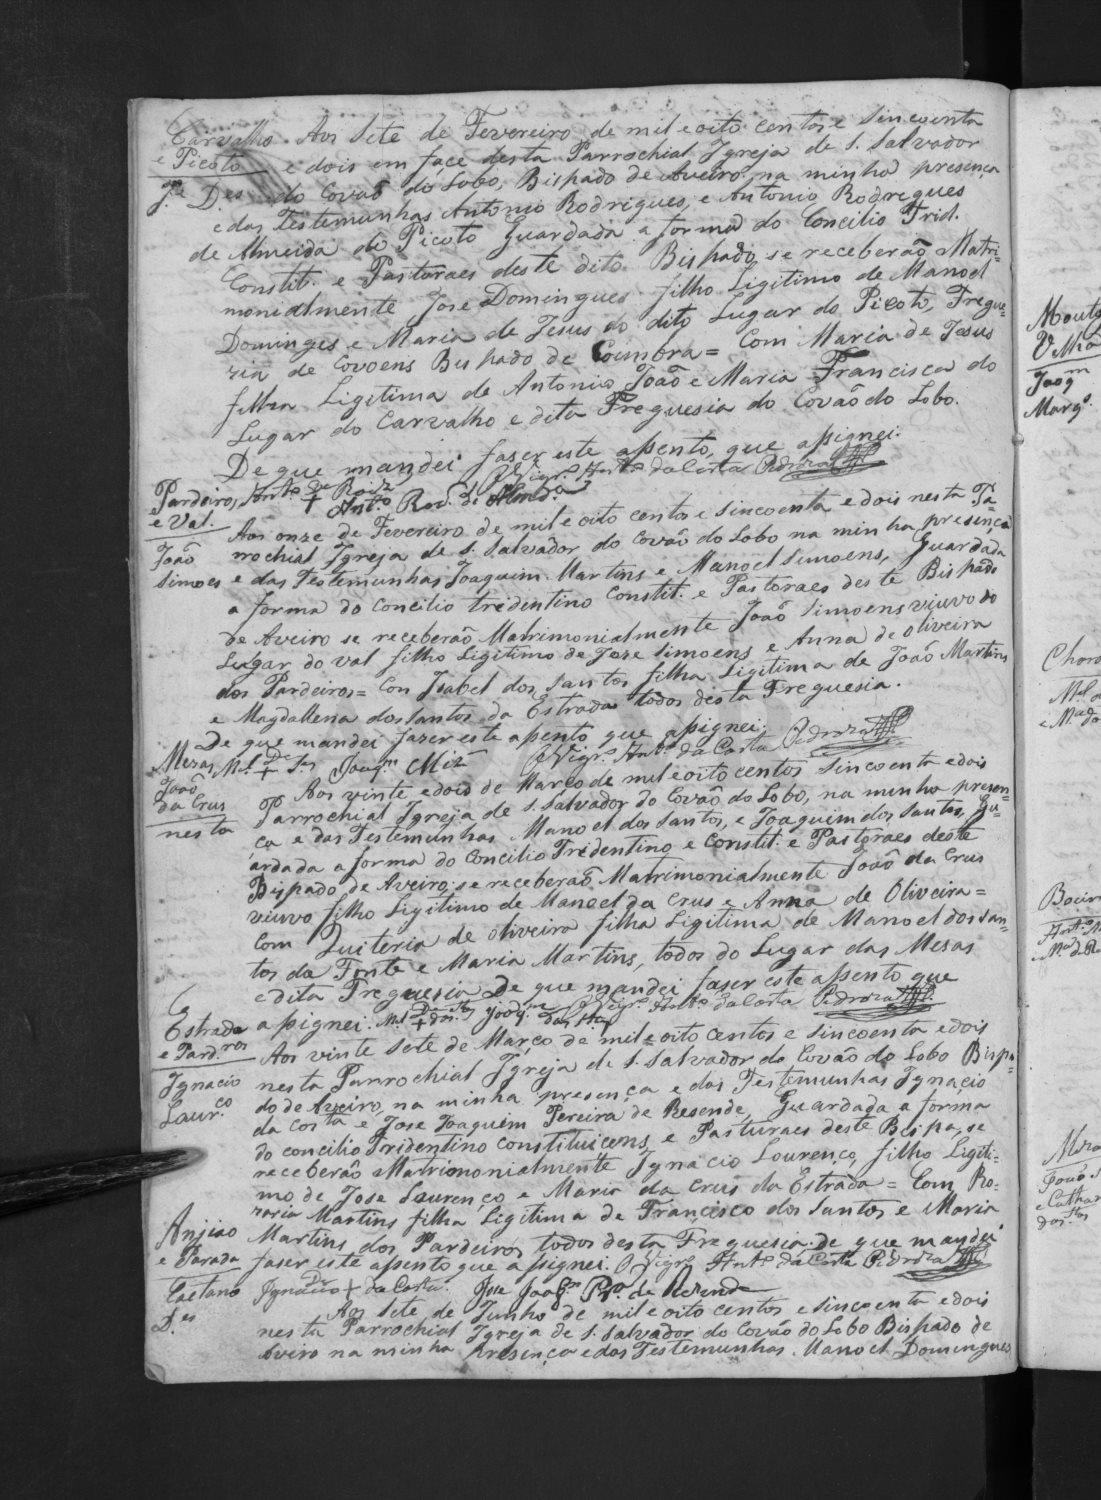 Carvalho
e Picoto
J.e D.es
Aos Sete de Fevereiro de mil e oito centos e sincoenta
e dois em façe desta Parrochial Igreja de S. Salvador
do Covaõ do Lobo, Bispado de Aveiro na minha presença
e das Testemunhas Antonio Rodrigues, e Antonio Rodrigues
de Almeida do Picoto Guardada a forma do Concilio Trid.
Constit. e Pasturaes deste dito Bispado, se receberaõ Matri=
monialmente Jose Domingues filho Ligitimo de Manoel
Domingues e Maria de Jesus do dito Lugar do Picoto, Fregue=
zia de Covoens Bispado de Coimbra = Com Maria de Jesus
filha Ligitima de Antonio Joaõ e Maria Francisca do
Lugar do Carvalho e dita Freguesia do Covaõ do Lobo.
De que mandei faser este assento, que assignei.
O Vigr.o Ant.o da Costa Pedroza
Ant.o De + Roiz
Ant.o Rod. de Almd.a
Pardeiros,
e Val.
Joaõ
Simoes
Aos onze de Fevereiro de mil e oito centos e sincoenta e dois nesta Pa=
rrochial Igreja de S. Salvador do Covaõ do Lobo na minha presença
e das Testemunhas Joaquim Martins e Manoel Simoens, Guardada
a forma do Concilio tridentino Constit. e Pastoraes deste Bispado
de Aveiro se receberaõ Matrimonialmente Joaõ Simoens viuvo do
Lugar do Val filho Ligitimo de Joze Simoens e Anna de Oliveira
dos Pardeiros = Con Isabel dos Santos filha Ligitima de Joaõ Martins
e Magdallena dos Santos da Estrada todos desta Freguesia.
De que mandei fazer este assento que assignei;
O Vigr.o Ant.o da Costa Pedroza
M.el De + S.es Joaq.m Miz
Mesas
Joaõ
da Crus
nesta
Aos vinte e dois de Março de mil e oito centos sincoenta e dois
Parrochial Igreja de S. Salvador do Covaõ do Lobo, na minha presen=
ça e das Testemunhas Manoel dos Santos, e Joaquim dos Santos, Gu=
ardada a forma do Concilio Tridentino e Constit. e Pastoraes deste
Bispado de Aveiro; se receberaõ Matrimonialmente Joaõ da Crus
viuvo filho Ligitimo de Manoel da Crus e Anna de Oliveira =
Com Quiteria de Oliveira filha Ligitima de Manoel dos San=
tos da Fonte e Maria Martins, todos do Lugar das Mesas
e dita Freguesia De que mandei faser este assento que
assignei. M.el De + dos S.tos Joaq.m dos S.tos O Vigr.o Ant.o da Costa Pedroza
Estrada
e Pard.ros
Ignacio
Laur.co
Aos vinte Sete de Março de mil e oito centos e sincoenta e dois
nesta Parrochial Igreja de S. Salvador do Covaõ do Lobo Bispa=
do de Aveiro, na minha presença e das Testemunhas Ignacio
da Costa e Jose Joaquim Pereira de Resende, Guardada a forma
do concilio Tridentino Constituiçens, e Pasturaes deste Bispa, se
receberaõ Matrimonialmente Ignacio Lourenço, filho Ligiti=
mo de Jose Lourenço e Maria da Crus da Estrada = Com Ro=
zaria Martins filha Ligitima de Francisco dos Santos e Maria
Martins dos Pardeiros todos desta Freguesia. de que mandei
faser este assento que assignei. O Vigr.o Ant.o da Costa Pedroza
Ignacio De + da Costa. Jose Joaq.m Pr.a de Rezende
Anjiao
e Parada
Caetano
D.es
Aos Sete de Junho de mil e oito centos e sincoenta e dois
nesta Parrochial Igreja de S. Salvador do Covaõ do Lobo Bispado de
Aveiro na minha presença e das Testemunhas Manoel Domingues
Velha
Joaq.m
Marq.s